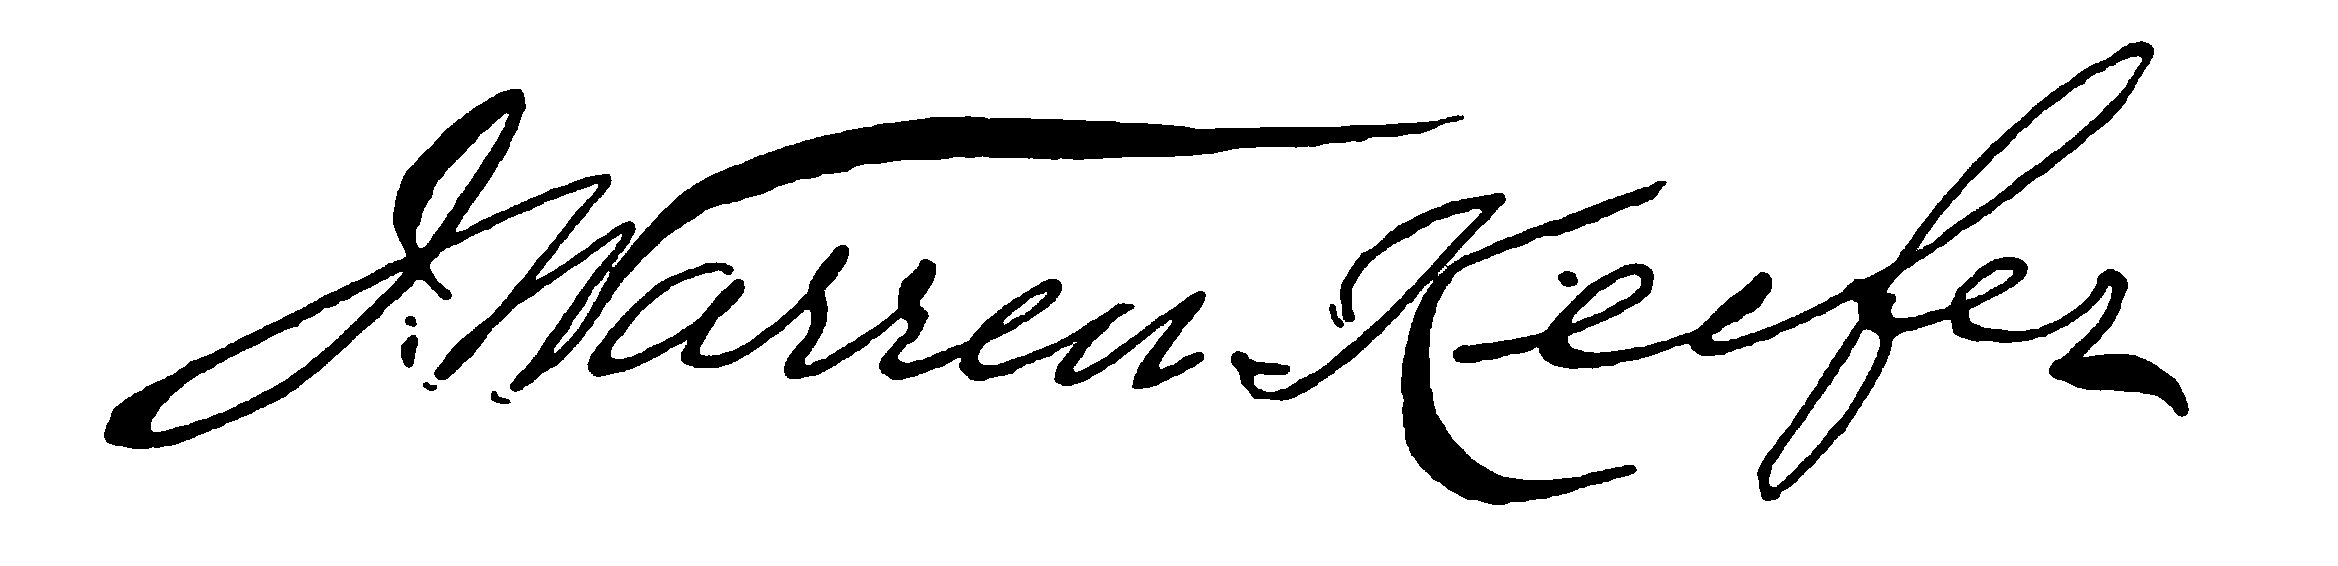 J. Warren Keifer